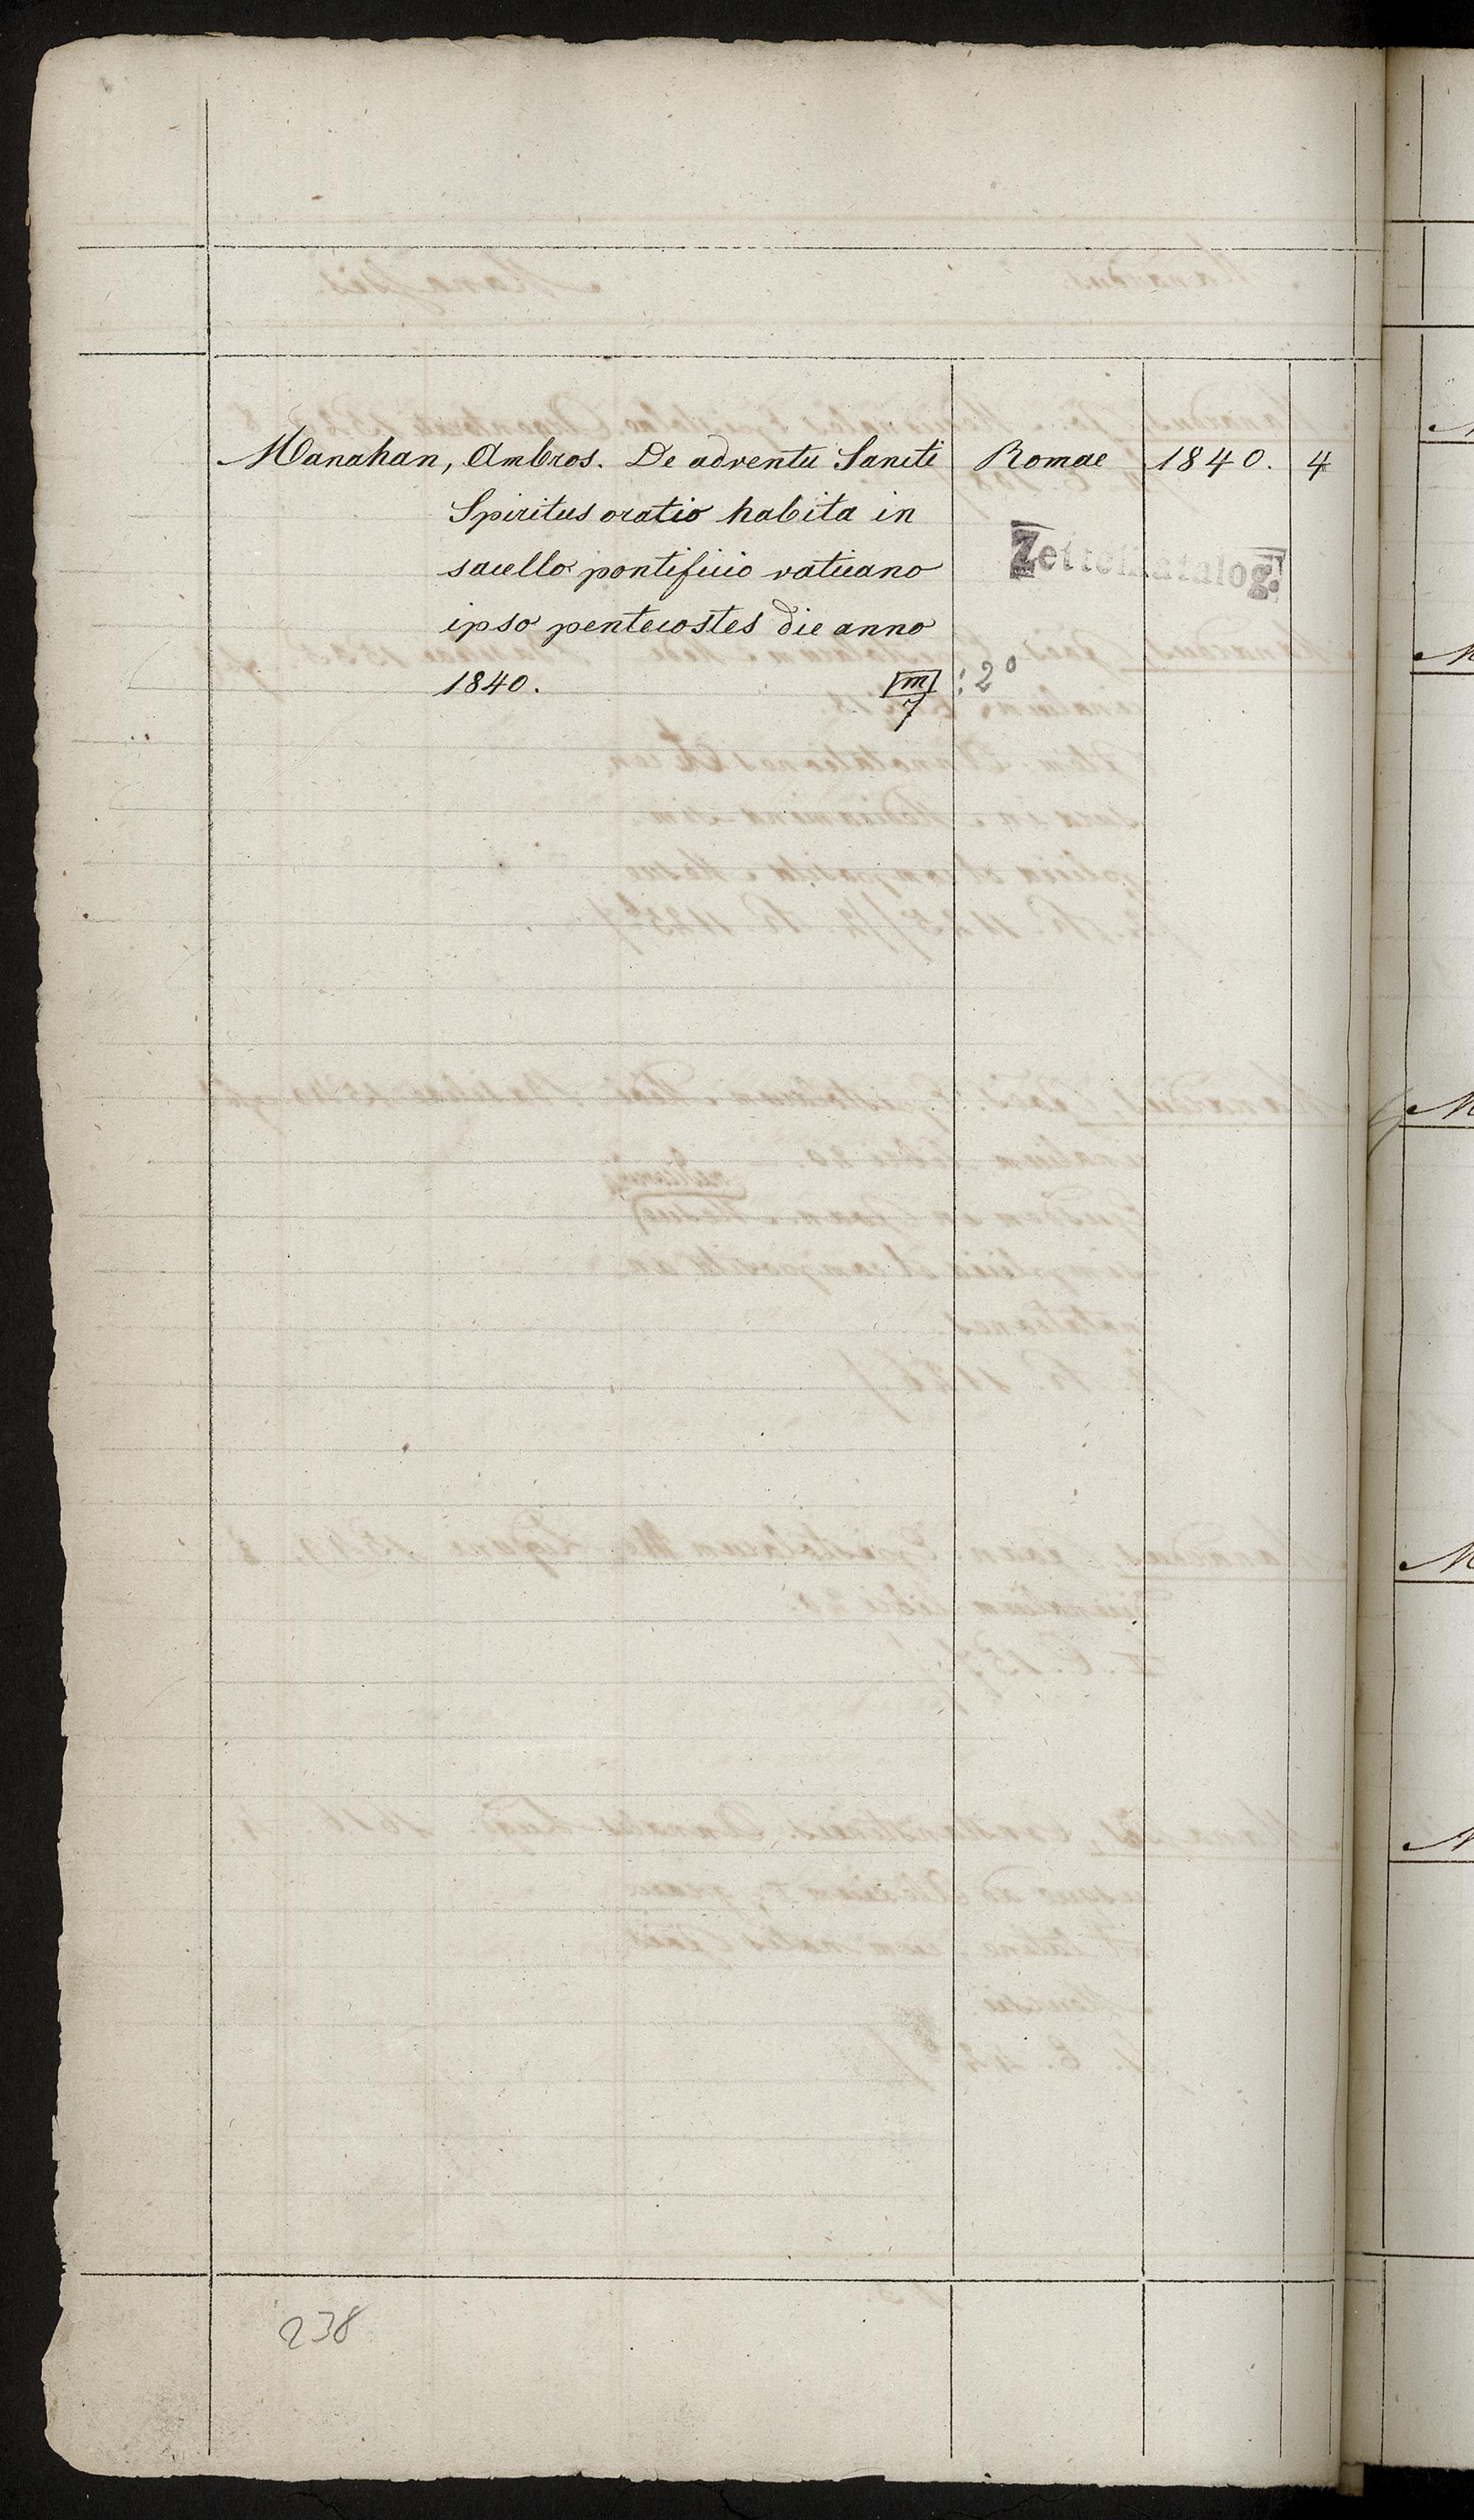 Manahan, Ambros. De adventu Sancti Romae 1840. 4
Spiritus oratio habita in
sacello pontificio vaticano
Zettelkatalog.
ipso pentecostes die anno
1840. m/7 : 2°
238